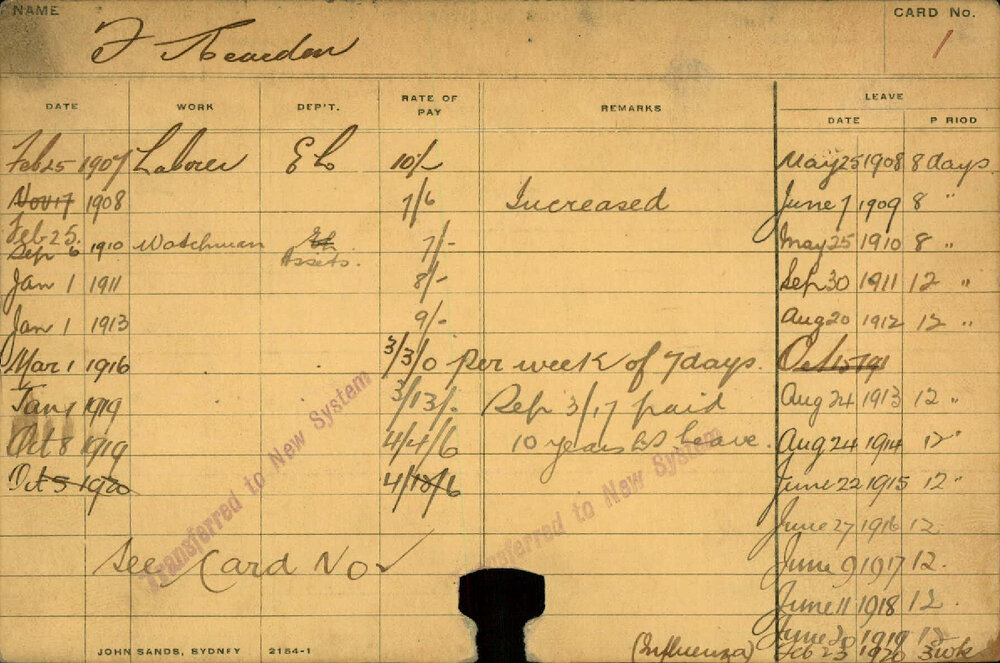 NAME
CARD No.
F Reardon
1
DATE WORK DEP'T. RATE OF PAY REMARKS LEAVE
DATE P RIOD
Feb 25 1907 Laborer 10/- May 25 1908 8 days
Nov 17 1908 7/6 Increased June 7 1909 8 "
Feb 25.
Sep 6 1910 Watchman Assets. 7/- May 25 1910 8 "
Jan 1 1911 8/- Sep 30 1911 12 "
Jan 1 1913 9/- Aug 20 1912 12 "
Mar 1 1916 3/3/0 per week of 7 days. Oct 15 1911
Jan 1 1919 3/13/- Sep 3/17 paid Aug 24 1913 12 "
Oct 8 1919 4/4/6 10 years LS Leave. Aug 24 1914 12 "
Oct 5 1920 4/18/6 June 22 1915 12 "
June 27 1916 12
See Card No 2 June 9 1917 12.
June 11 1918 12.
June 20 1919 12
(Influenza) Feb 23 1920 3 wk
Transferred to New System
Transferred to New System
JOHN SANDS, SYDNEY 2154-1